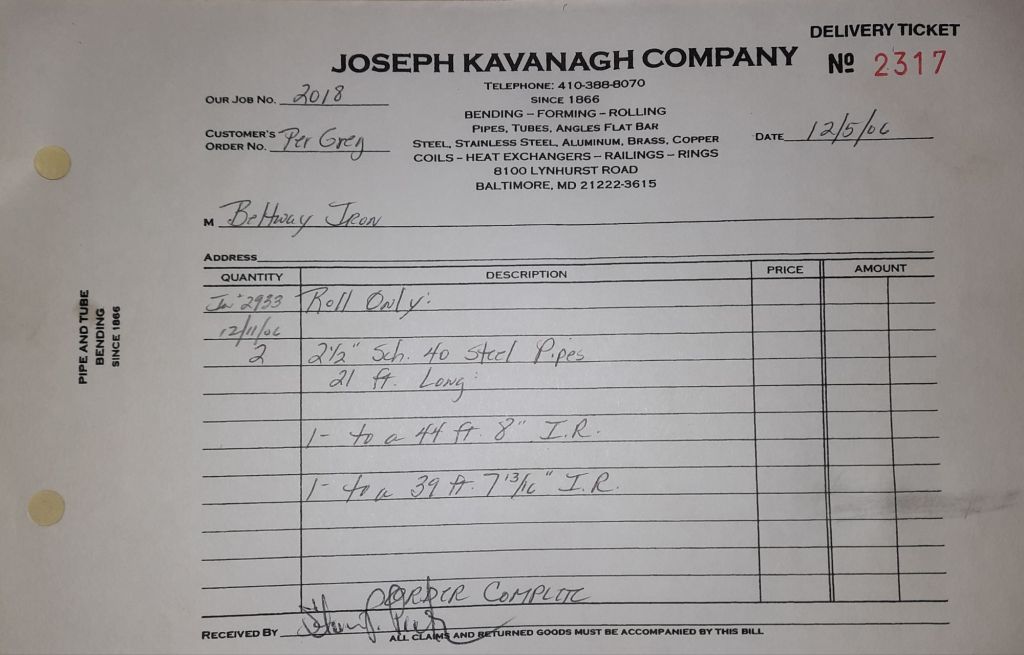 DELIVERY TICKET
JOSEPH KAVANAGH COMPANY
Nº 2317
TELEPHONE: 410-388-8070
SINCE 1866
BENDING – FORMING – ROLLING
PIPES, TUBES, ANGLES FLAT BAR
STEEL, STAINLESS STEEL, ALUMINUM, BRASS, COPPER
COILS – HEAT EXCHANGERS – RAILINGS – RINGS
8100 LYNHURST ROAD
BALTIMORE, MD 21222-3615
OUR JOB NO. 2018
CUSTOMER'S ORDER NO. Per Greg
DATE 12/5/06
M Beltway Iron
ADDRESS
QUANTITY DESCRIPTION PRICE AMOUNT
2933 Roll Only:
12/11/06
2 2½" Sch. 40 Steel Pipes
21 ft. Long:
1- to a 44 ft. 8" I.R.
1- to a 39 ft. 7 13/16" I.R.
ORDER COMPLETE
RECEIVED BY
ALL CLAIMS AND RETURNED GOODS MUST BE ACCOMPANIED BY THIS BILL
PIPE AND TUBE
BENDING
SINCE 1866